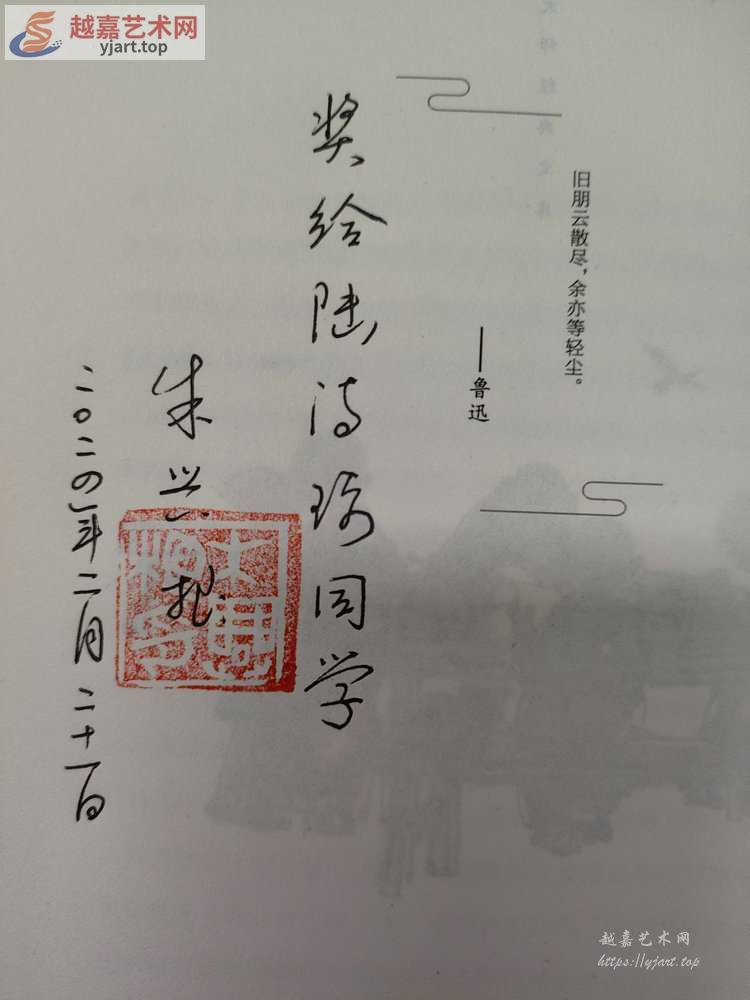 越嘉艺术网
yjart.top
旧朋云散尽，余亦等轻尘。
——鲁迅
奖给陆诗琦同学
朱兴龙
二〇二四年二月二十一日
越嘉艺术网
https://yjart.top